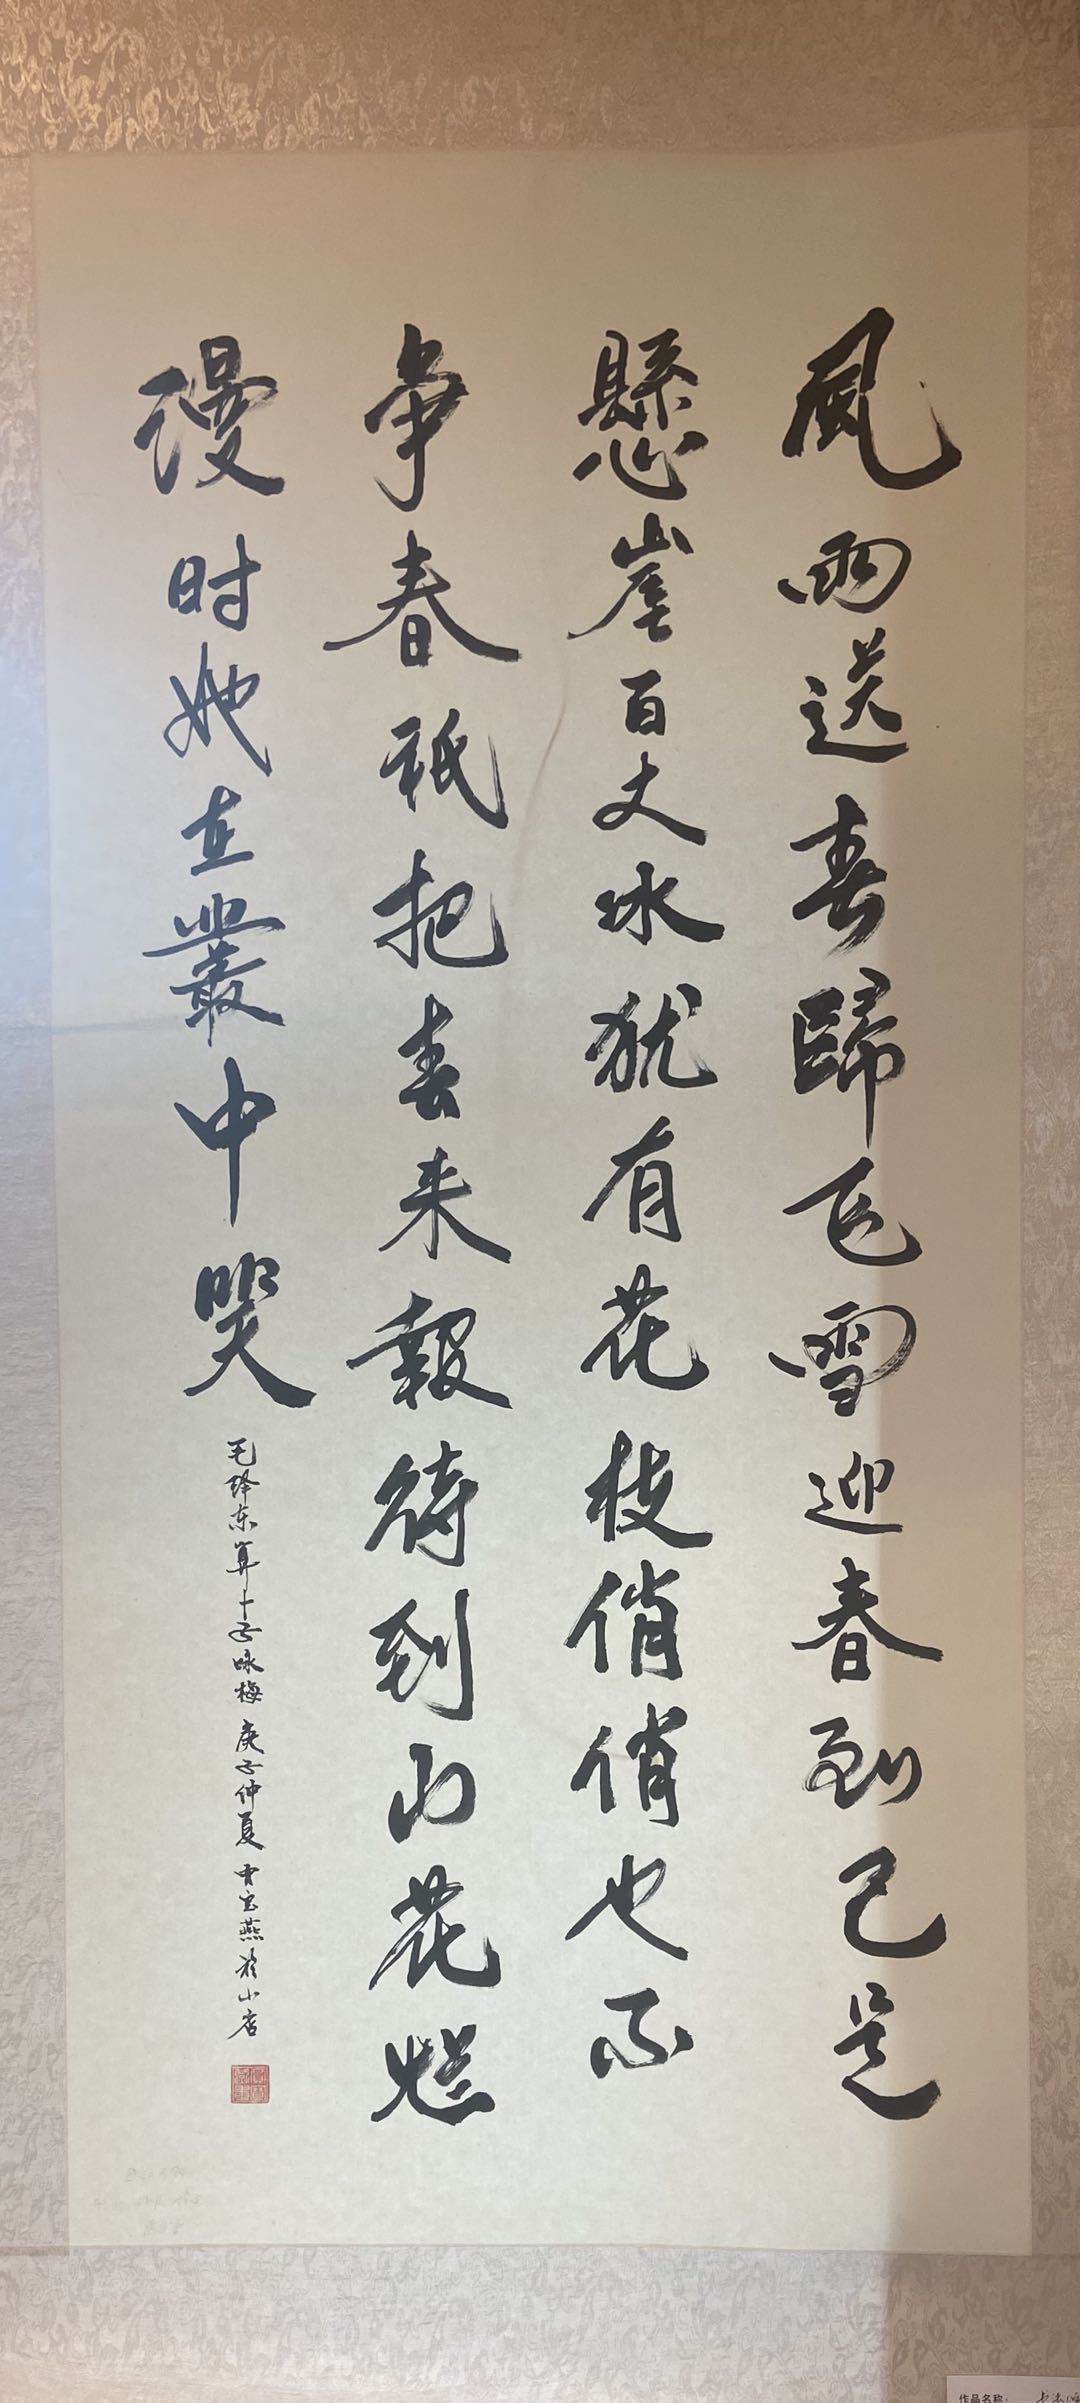 風雨送春歸飞雪迎春到已是
懸崖百丈冰犹有花枝俏俏也不
争春祇把春来報待到山花烂
漫时她在叢中笑
毛泽东算卜子咏梅 庚子仲夏 曹宝燕於小店
作品名称：